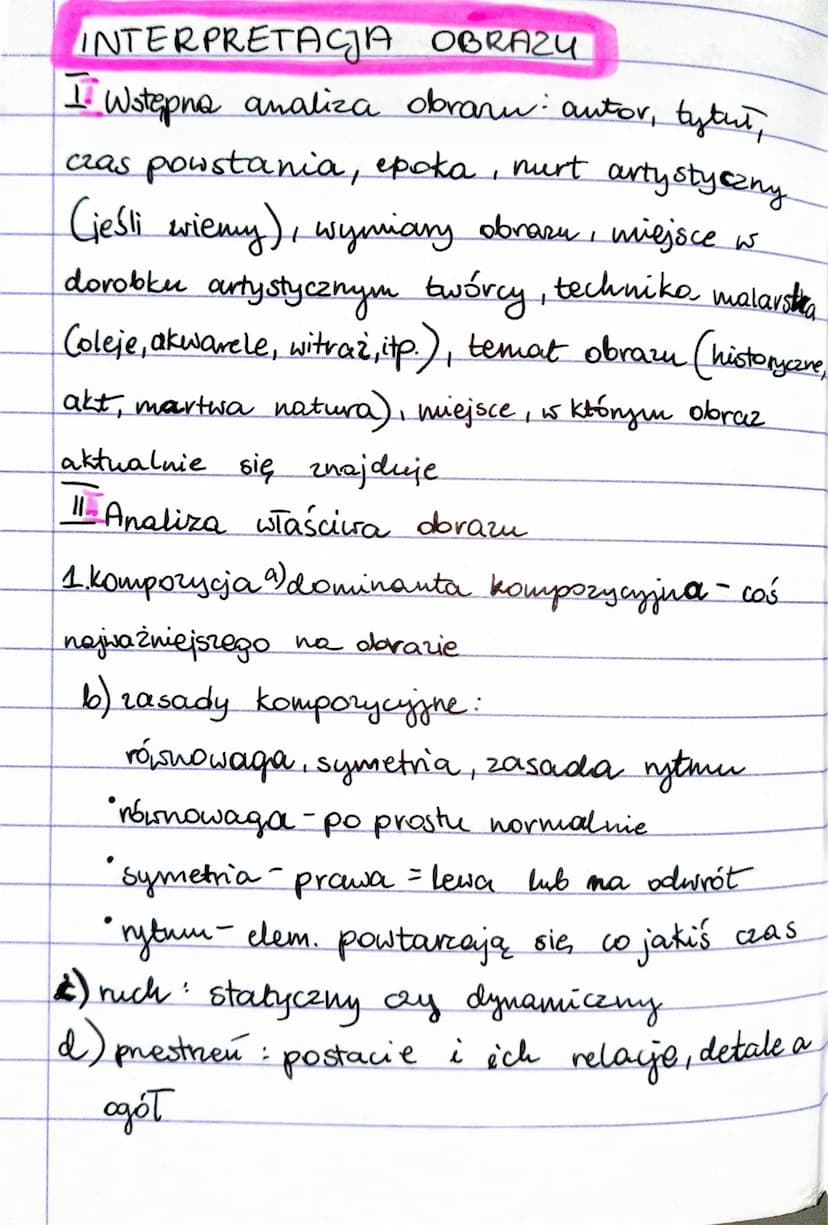 INTERPRETACJA OBRAZU
I. Wstępna analiza obrazu: autor, tytuł,
czas powstania, epoka, nurt artystyczny
(jeśli wiemy), wymiary obrazu, miejsce w
dorobku artystycznym twórcy, technika malarska
(oleje, akwarele, witraż, itp.), temat obrazu (historyczne,
akt, martwa natura), miejsce, w którym obraz
aktualnie się znajduje
II. Analiza właściwa obrazu
1. kompozycja a) dominanta kompozycyjna - coś
najważniejszego na obrazie
b) zasady kompozycyjne:
równowaga, symetria, zasada rytmu
• równowaga - po prostu normalnie
• symetria - prawa = lewa lub na odwrót
• rytm - elem. powtarzają się, co jakiś czas
c) ruch: statyczny czy dynamiczny
d) przestrzeń: postacie i ich relacje, detale a
ogół